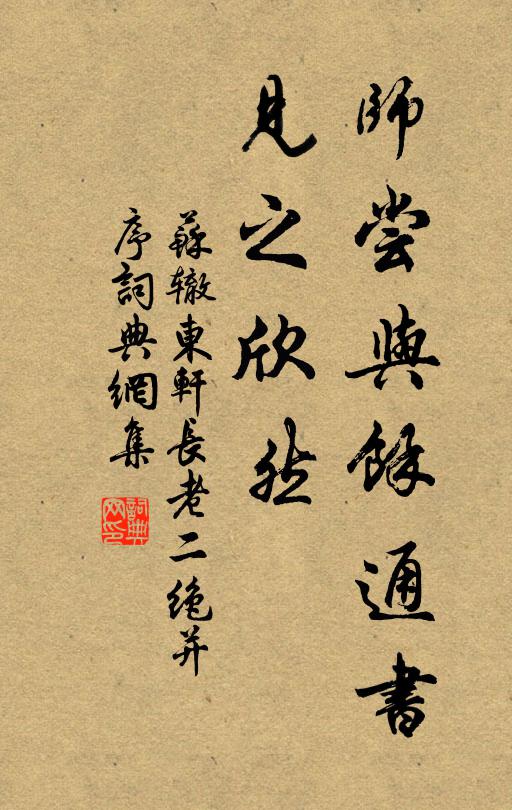 師嘗與餘通書
見之欣然
蘇辙東軒長老二絶并
序詞典網集
詞典网印